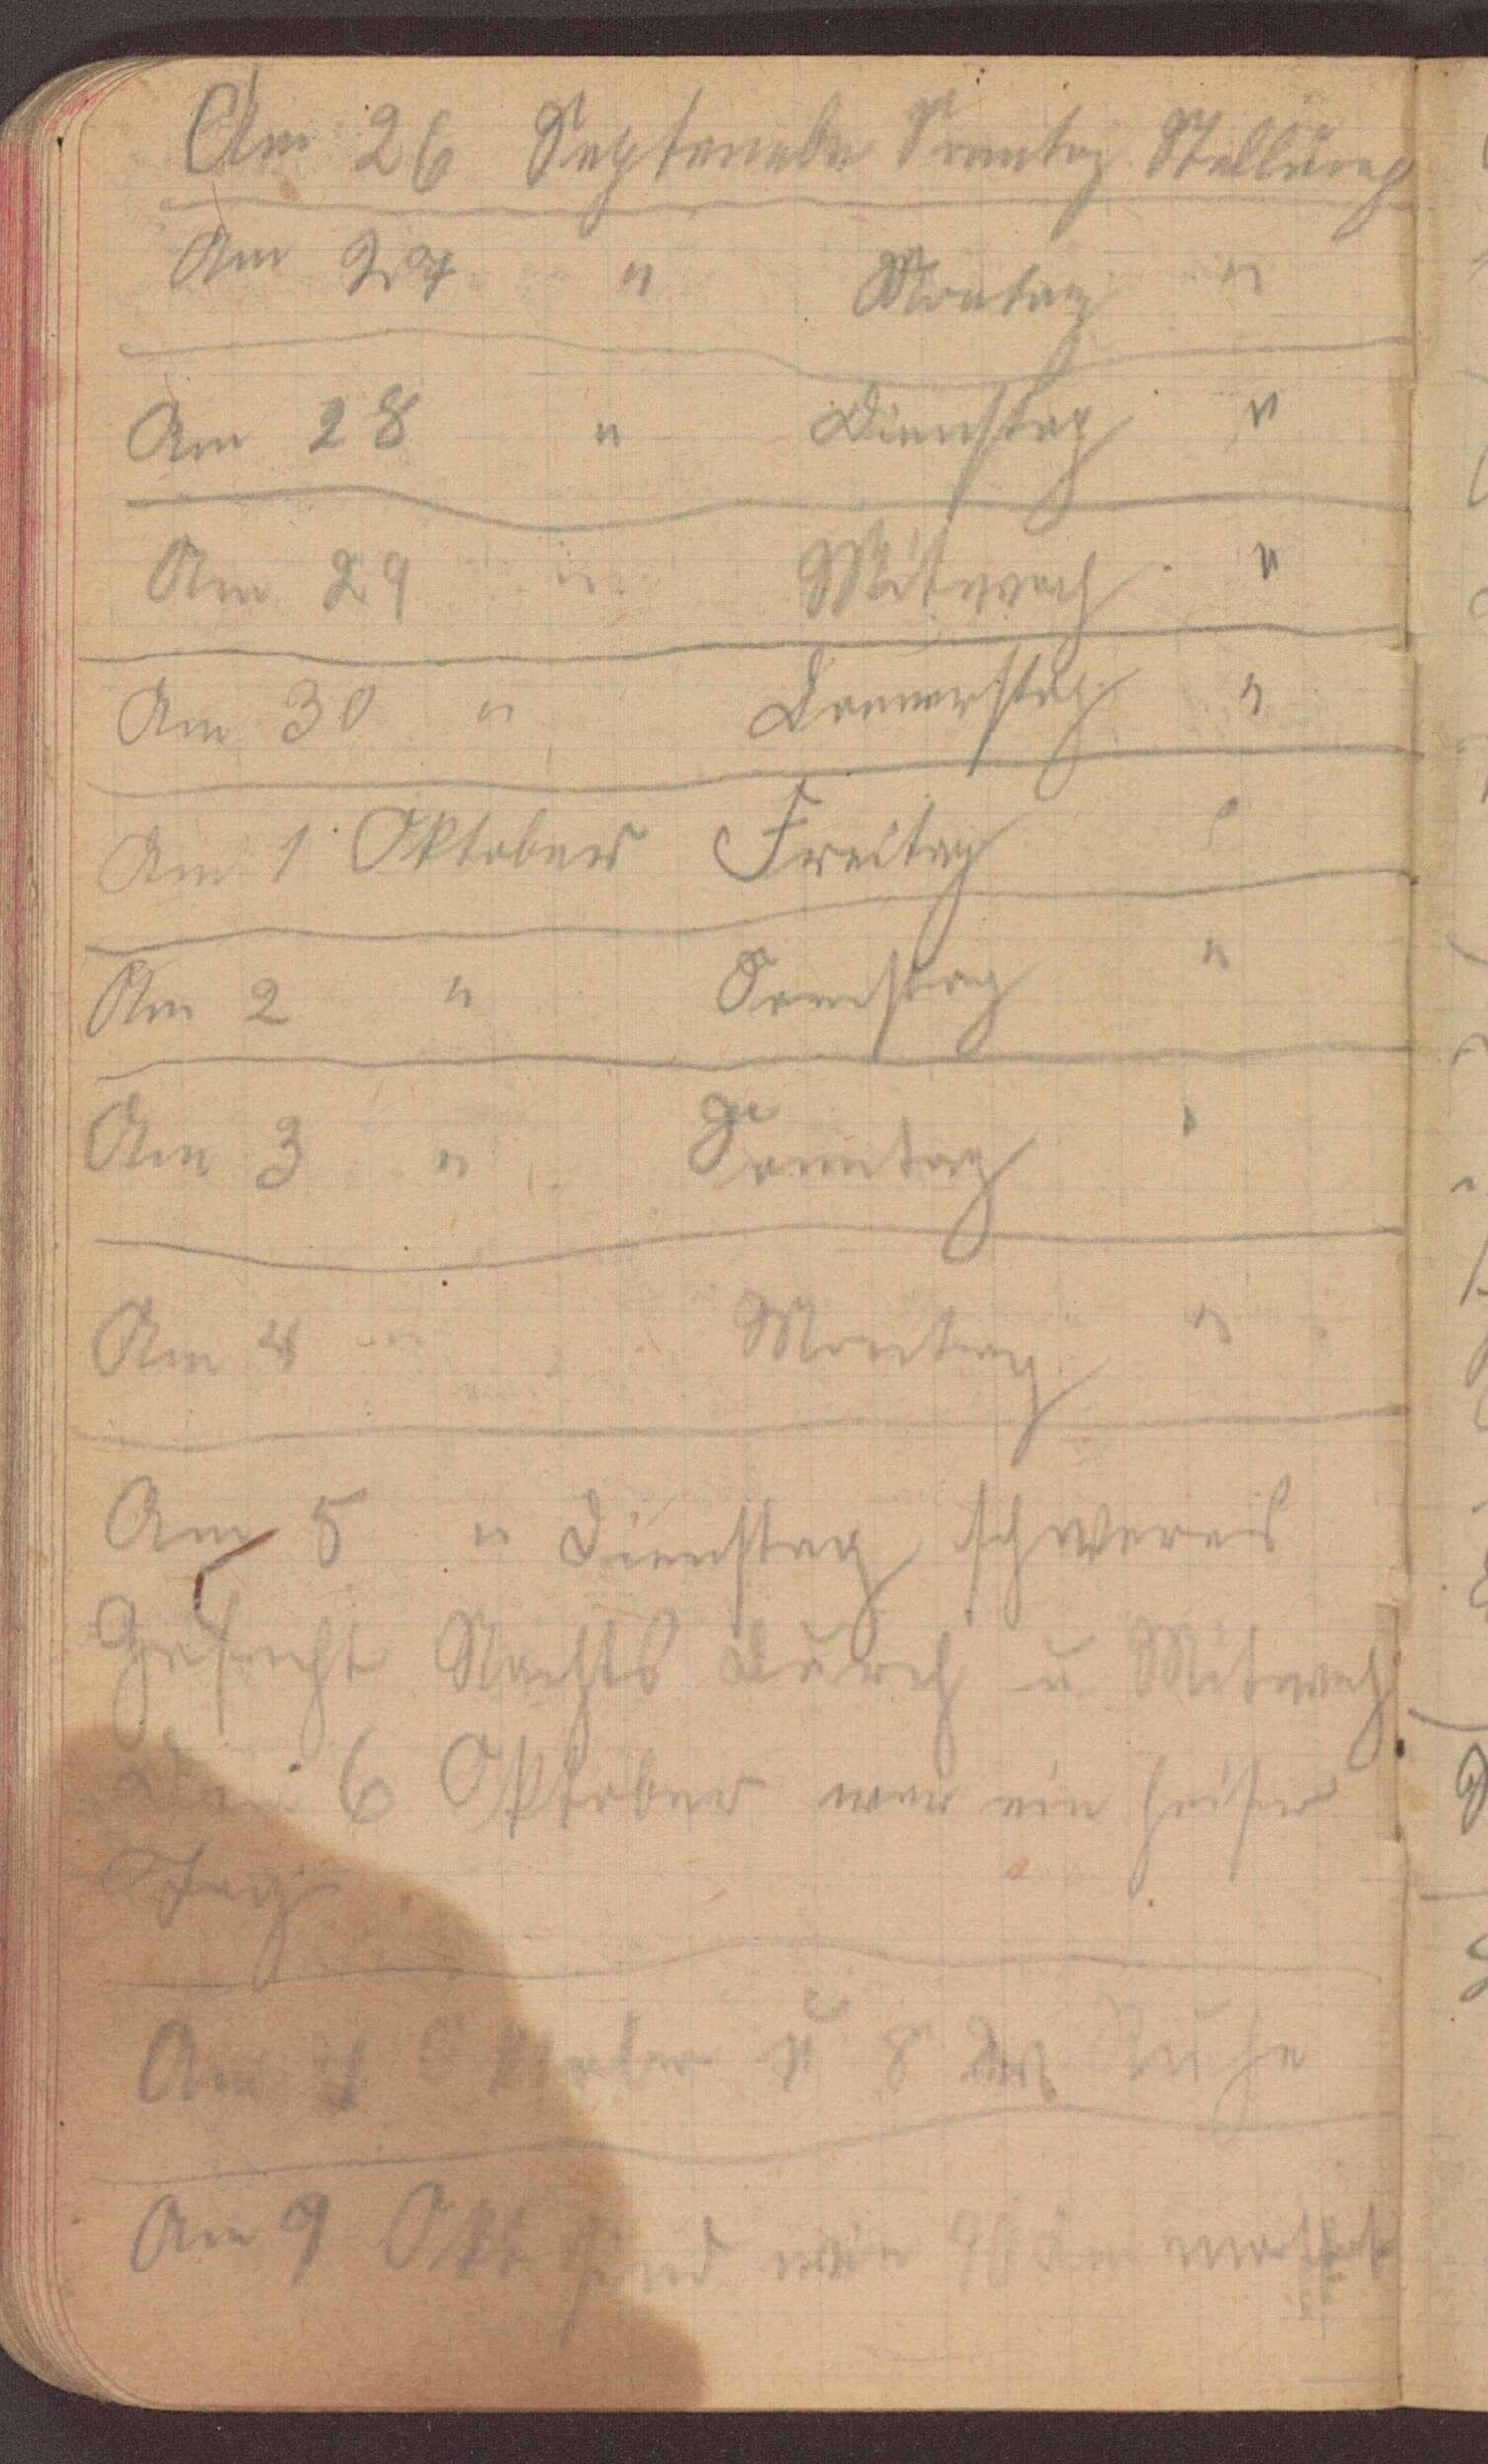 Am 26 September Sonntag Stellung
Am 27 " Montag "
Am 28 " Dienstag "
Am 29 " Mitwoch "
Am 30 " Donnerstag "
Am 1 Oktober Freitag "
Am 2 " Samstag "
Am 3 " Sonntag "
Am 4 " Montag "
Am 5 " Dienstag schweres
Gefecht Nachts durch u Mitwoch
den 6 Oktober war ein heiser
Tag
Am 7 Oktober u 8 in Ruhe
Am 9 Okt sind wir